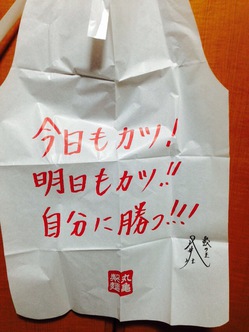 今日もカツ!
明日もカツ!!
自分に勝つ!!!
丸亀
製麺